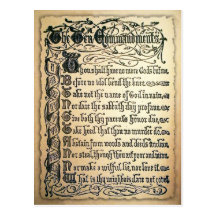 The Ten Commandments
Thou shalt have no more Gods but me,
Before no idol bend the knee.
Take not the name of God in vain,
Nor dare the sabbath day profane.
Give both thy parents honor due,
Take heed that thou no murder do.
Abstain from words and deeds unclean,
Nor steal, though thou art poor and mean.
Nor make a wilful lie, nor love it,
What is thy neighbor's dare not covet.